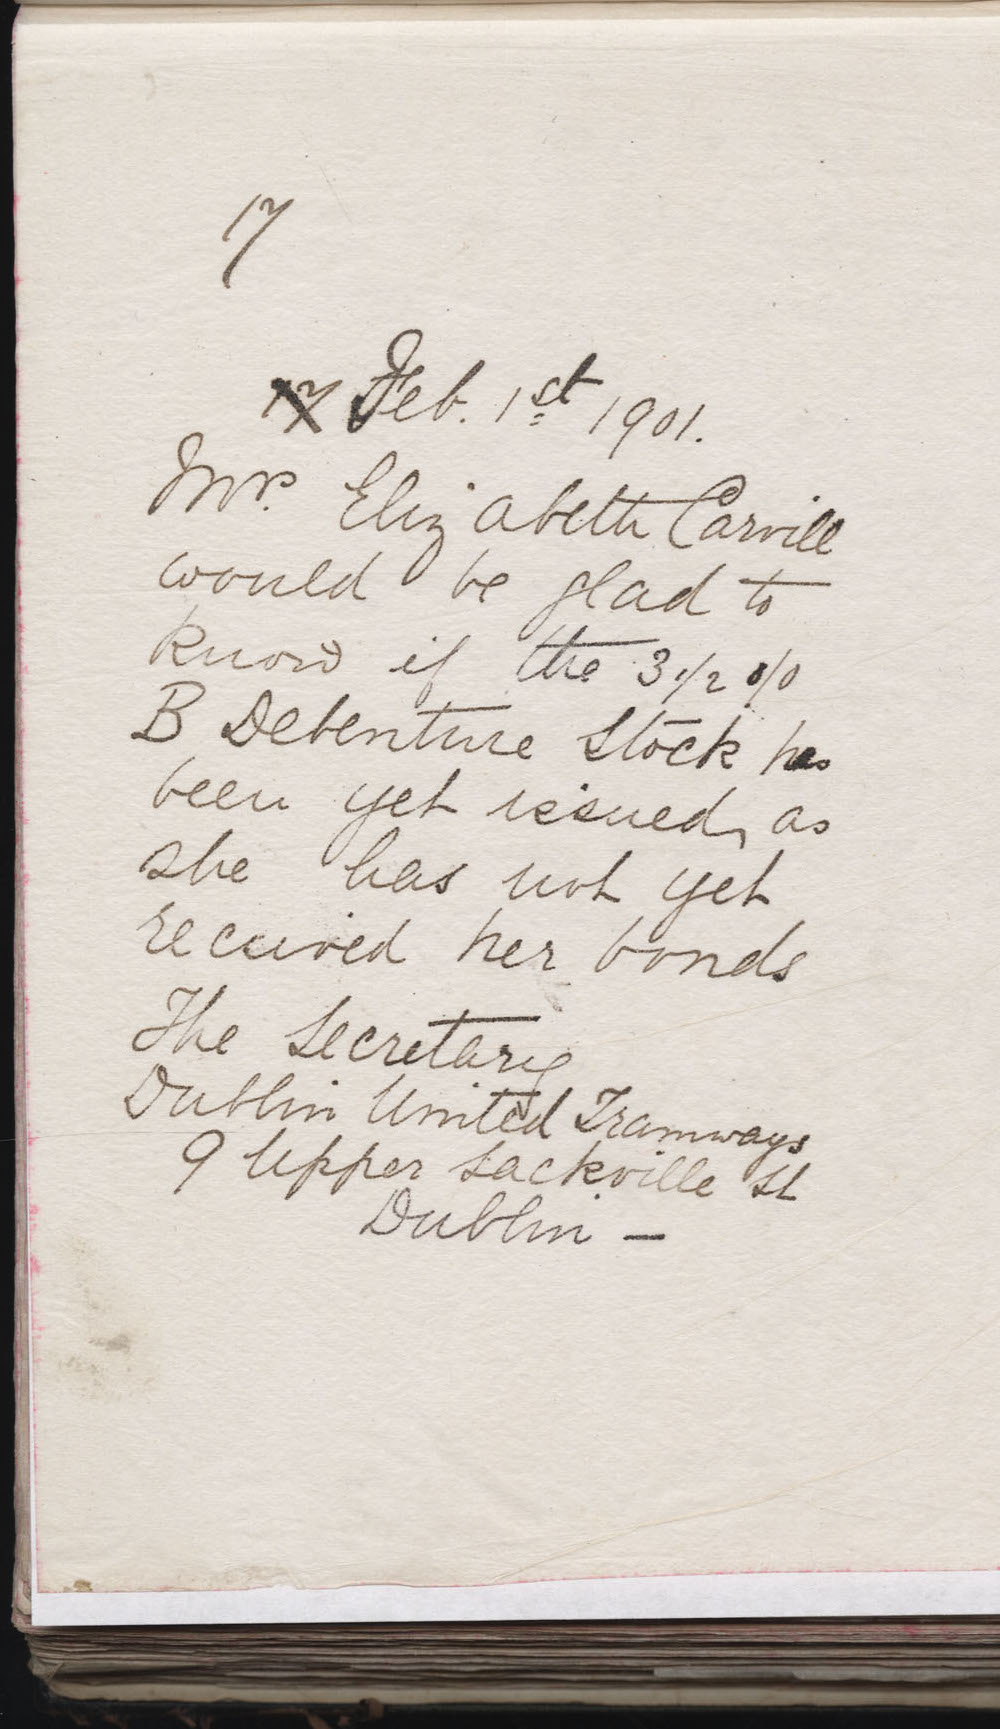 17
17 Feb. 1st 1901.
Mrs. Elizabeth Carvill
would be glad to
know if the 3 1/2 %
B Debenture Stock has
been yet issued, as
she has not yet
received her bonds
The Secretary
Dublin United Tramways
9 Upper Sackville St
Dublin —